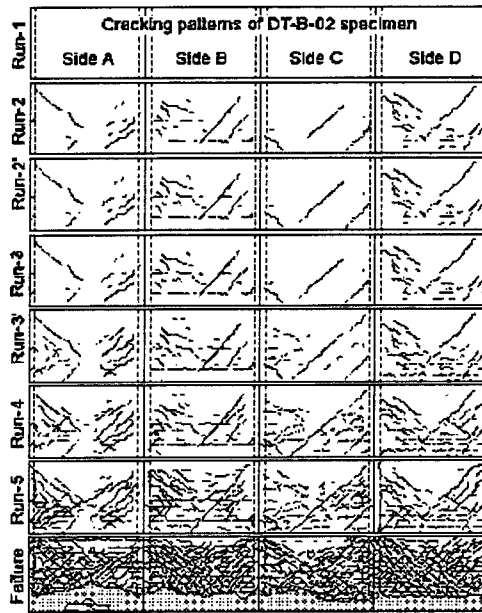 Cracking patterns of DT-B-02 specimen
Run-1
Side A Side B Side C Side D
Run-2
Run-2'
Run-3
Run-3'
Run-4
Run-5
Failure